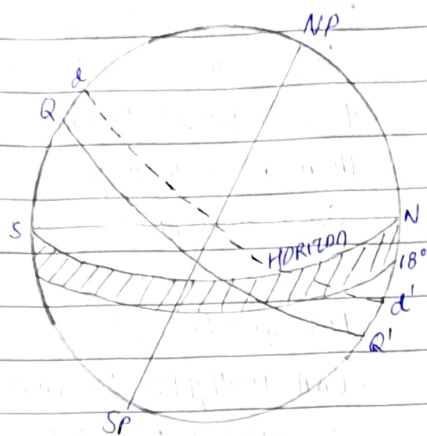 NP
d
Q
S
N
HORIZON
18°
d'
Q'
SP